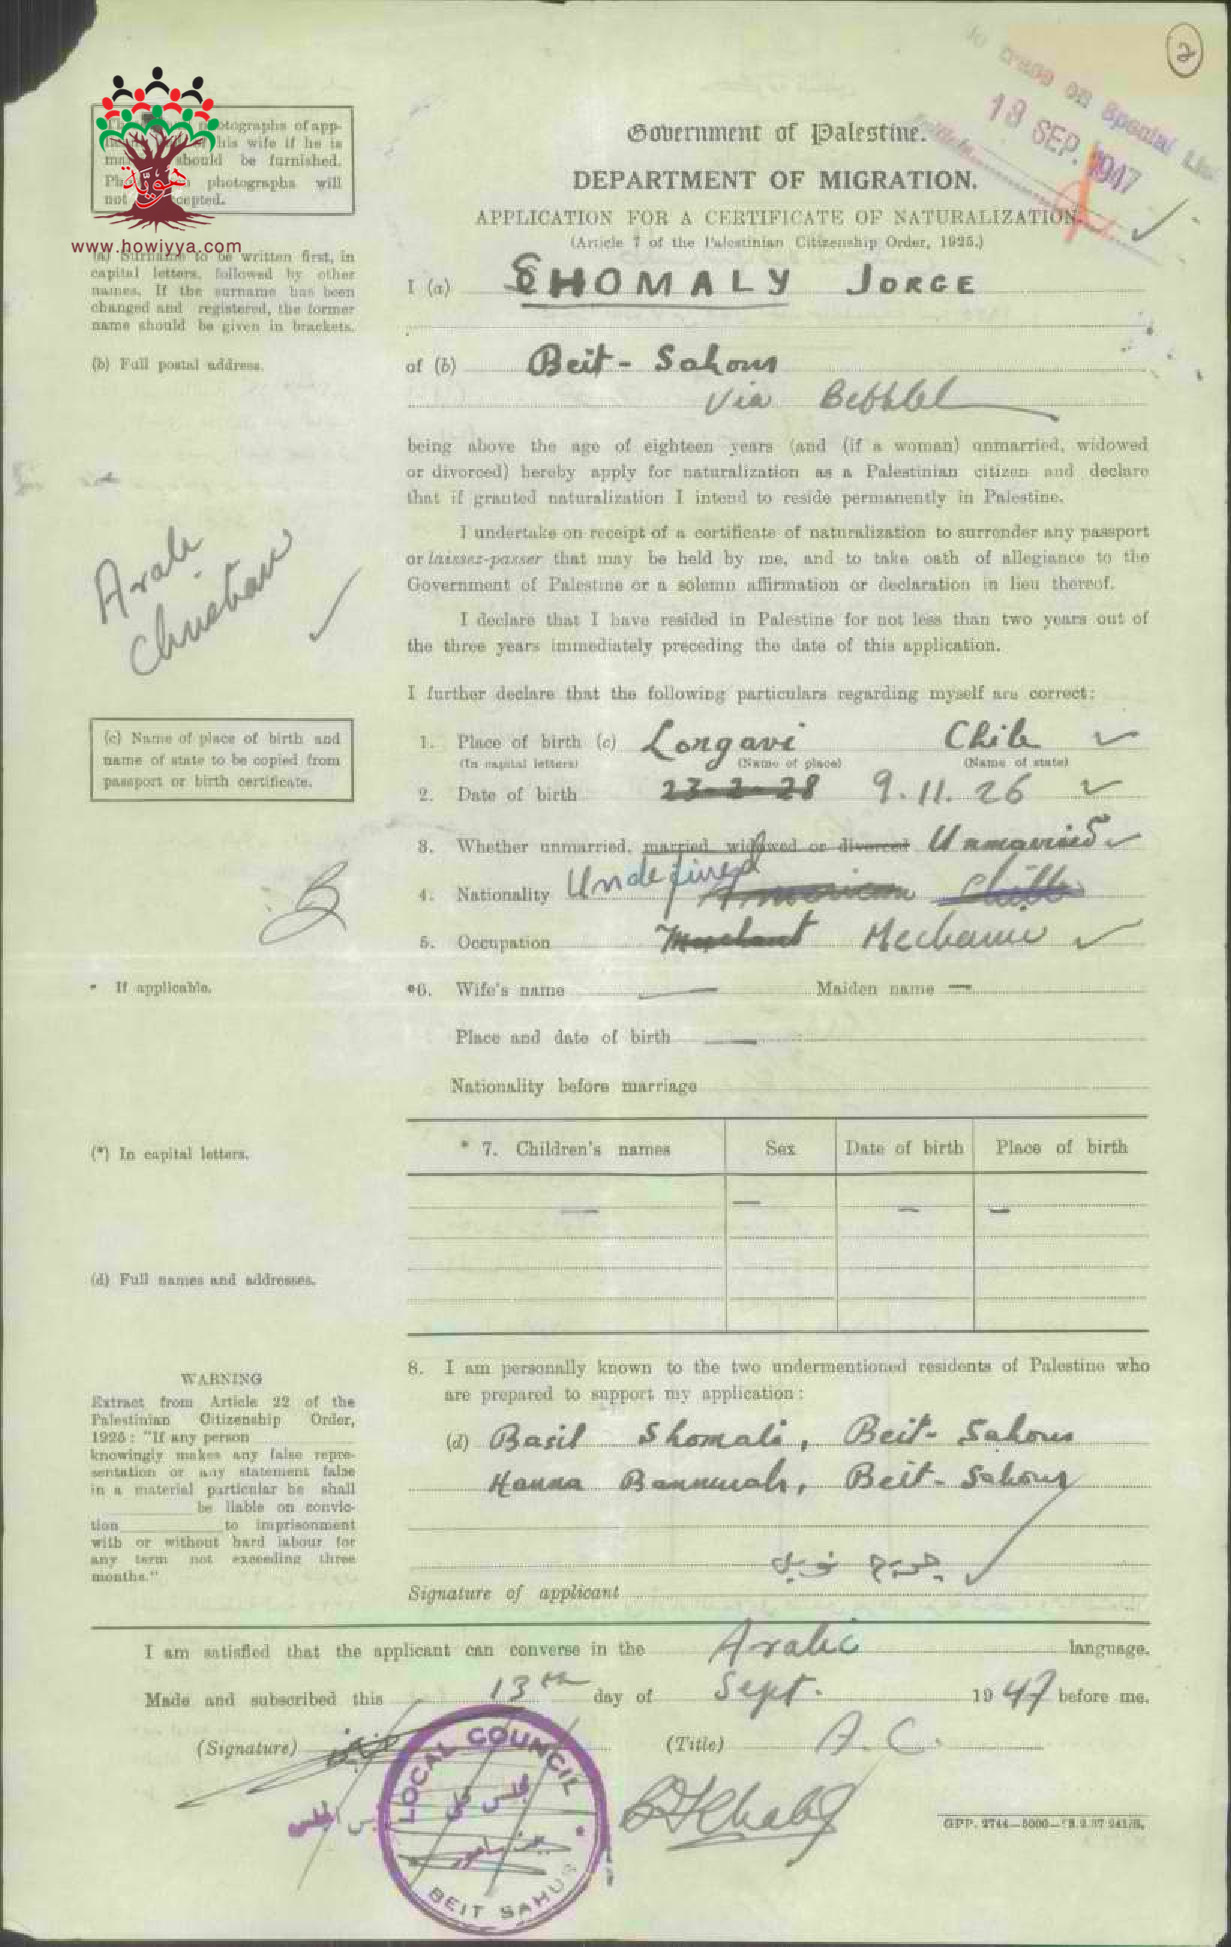 2
No trace on Special List
18 SEP. 1947
Government of Palestine.
DEPARTMENT OF MIGRATION.
APPLICATION FOR A CERTIFICATE OF NATURALIZATION.
(Article 7 of the Palestinian Citizenship Order, 1925.)
otographs of app-
his wife if he is
should be furnished.
photographs will
not cepted.
هوية
www.howiyya.com
(a) Surname to be written first, in
capital letters, followed by other
names. If the surname has been
changed and registered, the former
name should be given in brackets.
I (a) SHOMALY JORGE
(b) Full postal address.
of (b) Beit - Sahour
Via Bethlel
being above the age of eighteen years (and (if a woman) unmarried, widowed
or divorced) hereby apply for naturalization as a Palestinian citizen and declare
that if granted naturalization I intend to reside permanently in Palestine.
I undertake on receipt of a certificate of naturalization to surrender any passport
or laissez-passer that may be held by me, and to take oath of allegiance to the
Government of Palestine or a solemn affirmation or declaration in lieu thereof.
Arab
Christian
I declare that I have resided in Palestine for not less than two years out of
the three years immediately preceding the date of this application.
I further declare that the following particulars regarding myself are correct:
(c) Name of place of birth and
name of state to be copied from
passport or birth certificate.
1. Place of birth (c) Longavi Chile
(In capital letters) (Name of place) (Name of state)
2. Date of birth 23-2-28 9.11.26
3. Whether unmarried, married, widowed or divorced Unmarried
4. Nationality Undefined American Chile
5. Occupation Merchant Mechanic
* If applicable.
*6. Wife's name — Maiden name —
Place and date of birth —
Nationality before marriage
(*) In capital letters.
* 7. Children's names Sex Date of birth Place of birth
— — — —
(d) Full names and addresses.
8. I am personally known to the two undermentioned residents of Palestine who
are prepared to support my application:
(d) Basil Shomali, Beit-Sahour
Hanna Bannurah, Beit-Sahour
WARNING
Extract from Article 22 of the
Palestinian Citizenship Order,
1925: "If any person
knowingly makes any false repre-
sentation or any statement false
in a material particular he shall
be liable on convic-
tion to imprisonment
with or without hard labour for
any term not exceeding three
months."
Signature of applicant
I am satisfied that the applicant can converse in the Arabic language.
Made and subscribed this 13th day of Sept. 1947 before me.
(Signature) (Title) A.C.
LOCAL COUNCIL
مجلس محلي
بيت ساحور
BEIT SAHUR
GPP. 2744—5000—